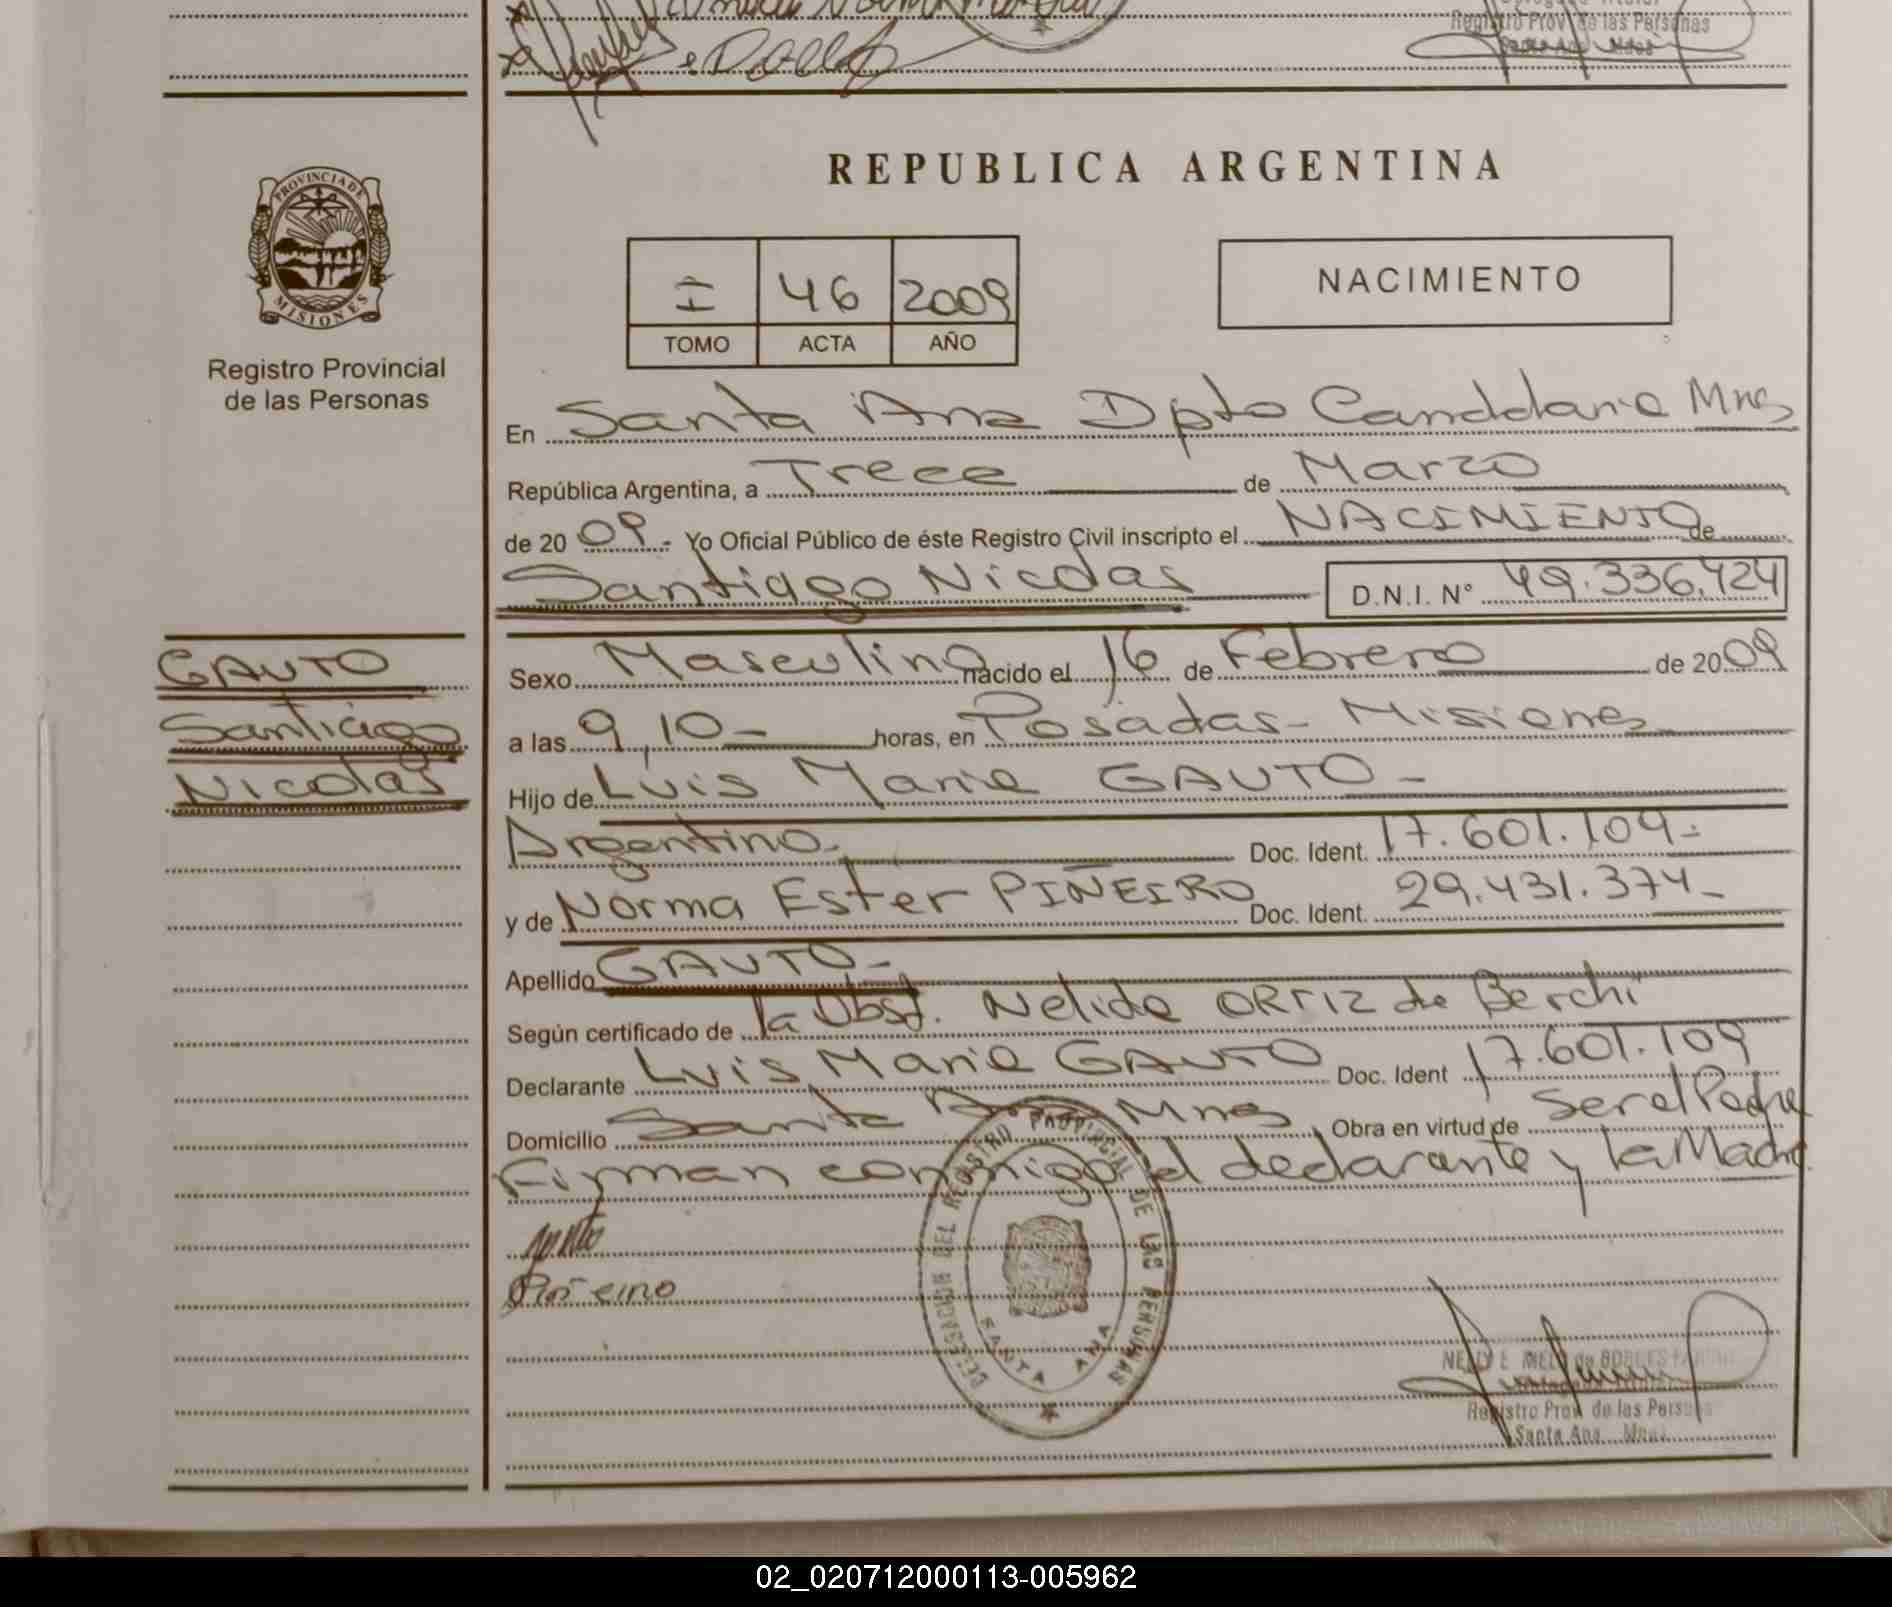 Registro Prov. de las Personas
Santa Ana Mnes
REPUBLICA ARGENTINA
PROVINCIA DE MISIONES
Registro Provincial
de las Personas
I 46 2009
TOMO ACTA AÑO
NACIMIENTO
En Santa Ana Dpto Candelaria Mnes
República Argentina, a Trece de Marzo
de 20 09.- Yo Oficial Público de éste Registro Civil inscripto el NACIMIENTO de
Santiago Nicolas D.N.I. N° 49.336.424
GAUTO
Santiago
Nicolas
Sexo Masculino nacido el 16 de Febrero de 2009
a las 9,10 - horas, en Posadas - Misiones
Hijo de Luis Maria GAUTO -
Argentino.- Doc. Ident. 17.601.109.-
y de Norma Ester PIÑEIRO Doc. Ident. 29.431.374 -
Apellido GAUTO -
Según certificado de la Obst. Nelida ORTIZ de Berchi
Declarante Luis Maria GAUTO Doc. Ident 17.601.109
Domicilio Santa Ana Mnes Obra en virtud de ser el Padre
Firman conmigo el declarante y la Madre.
Piñeiro
DELEGACION DEL REGISTRO PROVINCIAL DE LAS PERSONAS
SANTA ANA
NELLY E. MELO de ROBLES
Registro Prov. de las Personas
Santa Ana Mnes
02_020712000113-005962